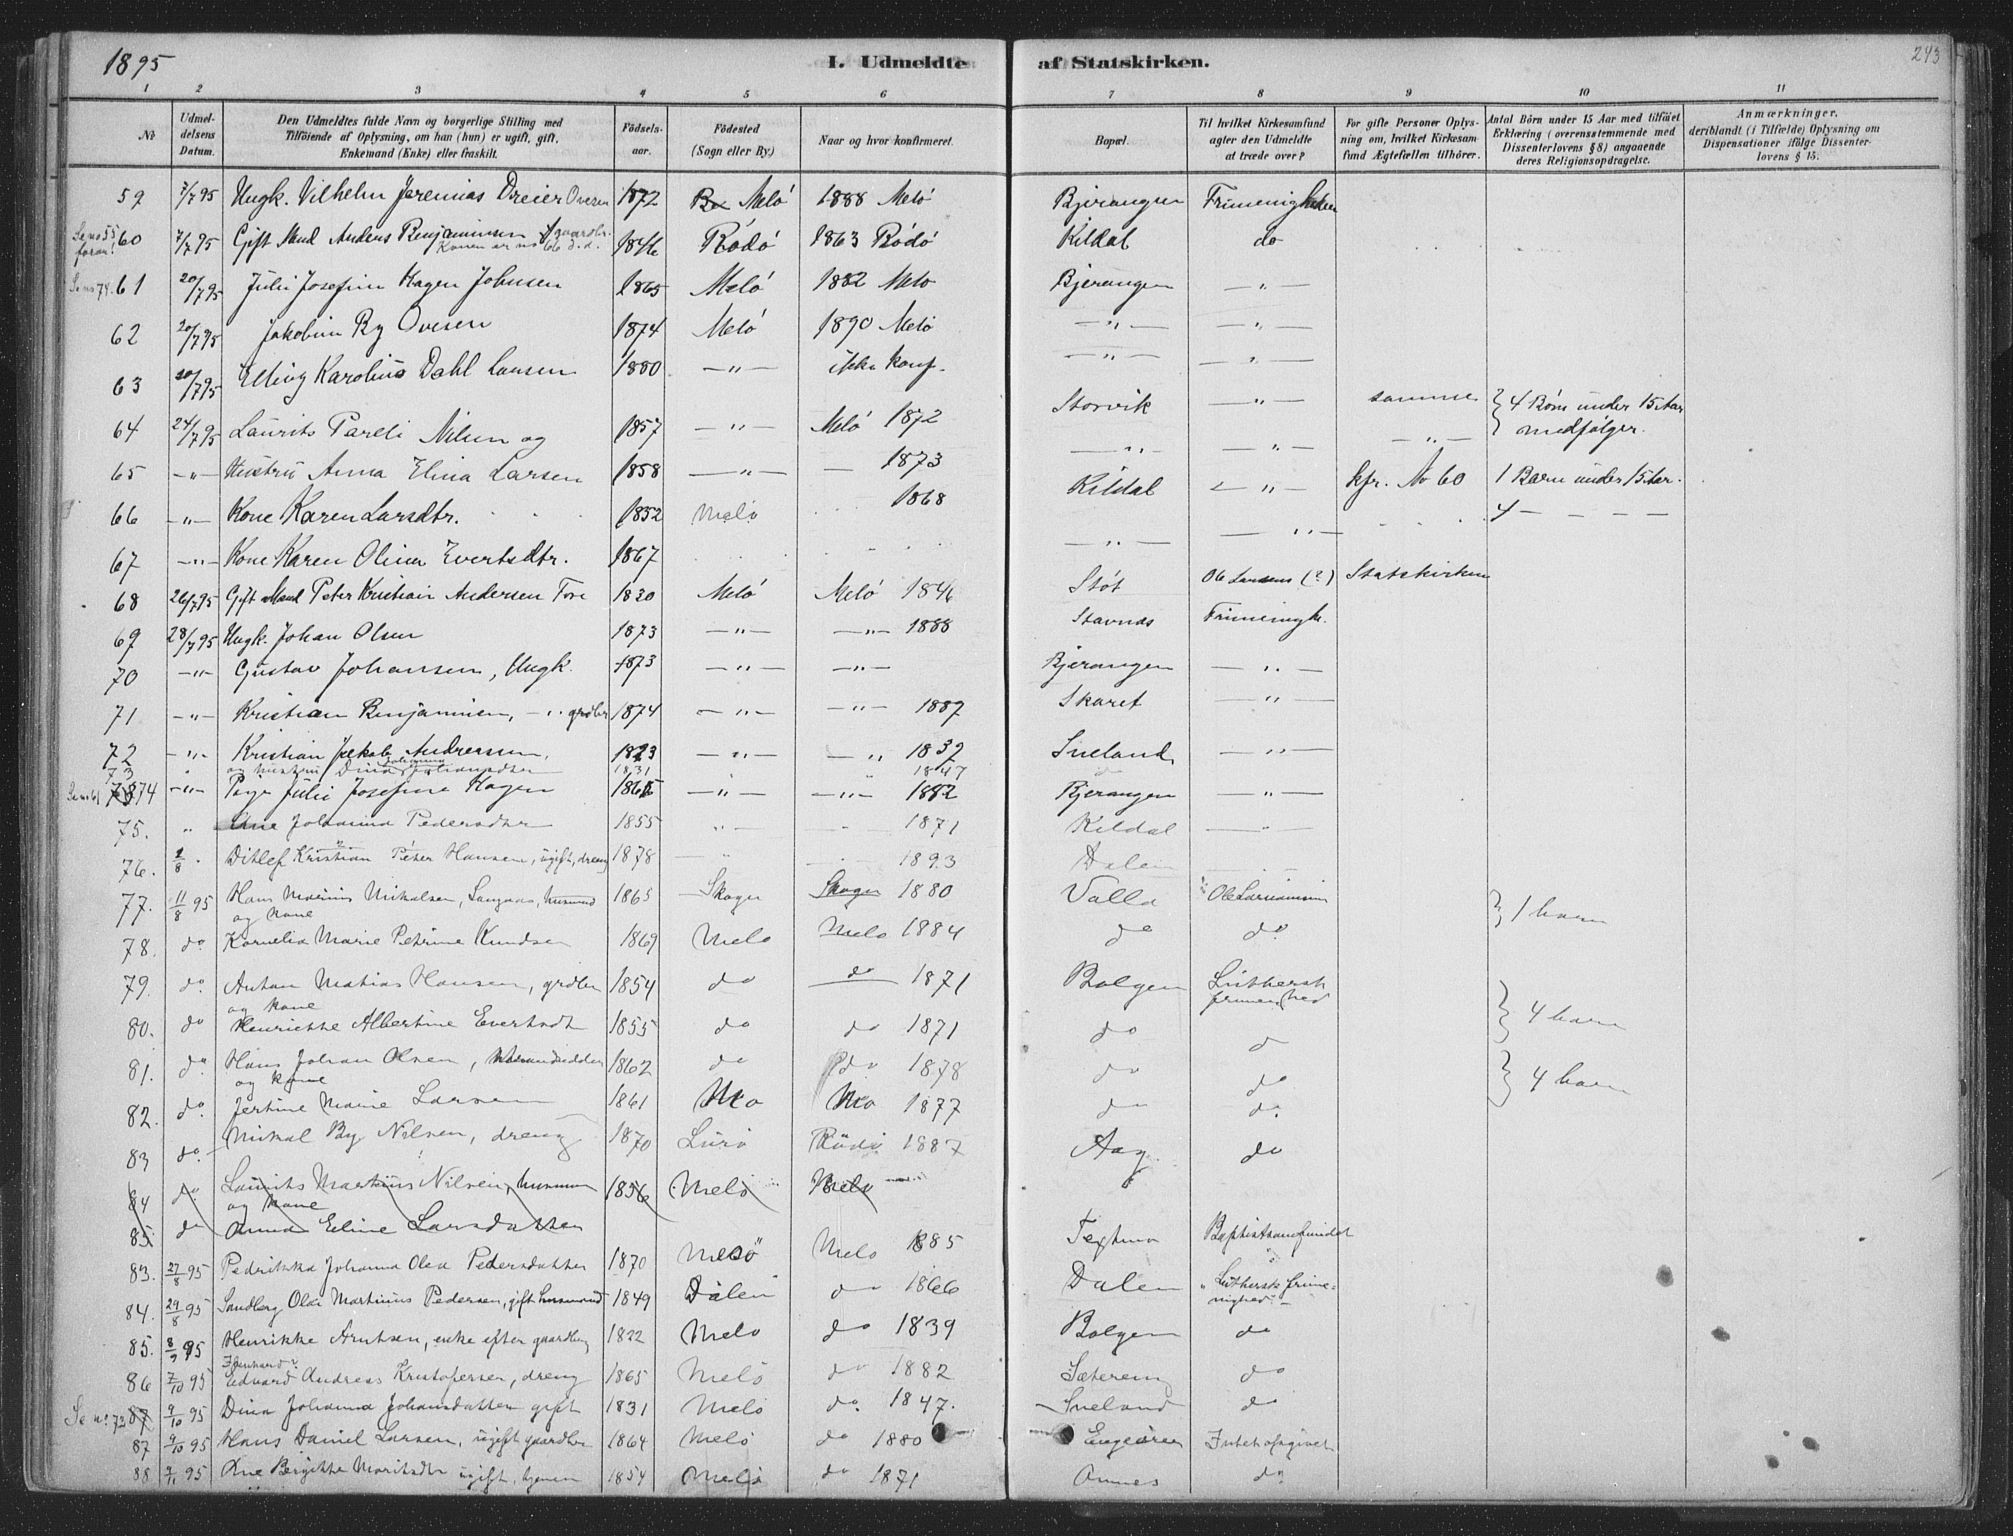 1895
I. Udmeldte af Statskirken.
243
1 2 3 4 5 6 7 8 9 10 11
No
Udmeldelsens Datum.
Den Udmeldtes fulde Navn og borgerlige Stilling med
Tilföiende af Oplysning, om han (hun) er ugift, gift,
Enkemand (Enke) eller fraskilt.
Födselsaar.
Födested
(Sogn eller By.)
Naar og hvor konfirmeret.
Bopæl.
Til hvilket Kirkesamfund
agter den Udmeldte
at træde over?
For gifte Personer Oplysning om, hvilket Kirkesamfund Ægtefællen tilhörer.
Antal Börn under 15 Aar med tilföiet
Erklæring (overensstemmende med
Dissenterlovens § 8) angaaende
deres Religionsopdragelse.
Anmærkninger,
deriblandt (i Tilfælde) Oplysning om
Dispensationer ifölge Dissenterlovens § 15.
59 7/7 95 Ungk. Vilhelm Jeremias Dreier Ovesen 1872 Melö 1888 Melö Bjerangen Frimenigheden
Se no 55 foran! 60 7/7 95 Gift Mand Anders Benjaminsen gaardbr. Konen er no 66 d.d. 1846 Rödö 1863 Rödö Kildal do
Se no 74. 61 20/7 95 Juli Josefine Hagen Johnsen 1865 Melö 1882 Melö Bjerangen — " —
62 20/7 95 Jakobine By Ovesen 1874 Melö 1890 Melö — " — — " —
63 20/7 95 Elling Karolius Dahl Larsen 1880 — " — ikke konf. — " — — " —
64 24/7 95 Laurits Pareli Nilsen og 1857 — " — Melö 1872 Storvik — " — samme } 4 Börn under 15 Aar medfölger.
65 — " — Hustru Anna Elina Larsen 1858 — " — — 1873 — " — — " — — " —
66 — " — Kone Karen Larsdtr. 1852 Melö 1868 Kildal — " — kfr. No 60 1 Barn under 15 Aar.
67 — " — Kone Karen Olina Evertsdtr. 1867 — " — — " — 4 — — — —
68 26/7 95 Gift Mand Peter Kristian Andersen Tore 1830 Melö Melö 1846 Stöt Ole Larsens (?) Statskirken
69 28/7 95 Ungk. Johan Olsen 1873 — " — — " — 1888 Stavnes Frimenigh.
70 — " — Gustav Johansen, Ungk. 1873 — " — — " — Bjerangen — " —
71 — " — Kristian Benjaminsen, — " — grdbr 1874 — " — — " — 1889 Skaret — " —
72 — " — Kristian Jakob Andreassen. 1823 — " — — " — 1839 Sneland — " —
73 " og hustru Dina Johanna Johansdtter 1831 " " 1847 do
Se no 61 74 — " — Pige Juli Josefine Hagen 1865 — " — — " — 1882 Bjerangen — " —
75. " Ane Johanna Pedersdtter 1855 " — 1871 Kildal — " —
76. 2/8 Ditlef Kristian Peter Hansen, ugift, dreng 1878 — " 1893 Dalen
77. 11/8 95 Hans Marius Mikalsen, husmand og kone 1865 Skoger Skoger 1880 Valla } 1 barn
78. do Kornelia Marie Petrine Knudsen 1869 Melö Melö 1884 do do
79. do Anton Matias Hansen, grdbr og kone 1854 do do 1871 Bolgen Luthersk frimenighed } 4 barn
80. do Henriette Albertine Evertsdt 1855 do do 1871 do do
81. do Hans Johan Olsen, og kone 1862 do do 1878 do do } 4 barn
82. do Jertine Marie Larsen 1861 Mo Mo 1877 do do
83 do. Mikal By Nilsen, dreng 1870 Lurö Rödö 1887 Aag do
84 do Laurits Martius Nilsen, husmann og kone 1856 Melö Melö
85. do Anna Eline Larsdatter
83. 27/8 95 Pedrikka Johanna Olea Pedersdatter 1870 Melö Melö 1885 Texmo Baptistsamfundet
84. 29/8 95 Sandberg Olai Martinus Pedersen, gift husmand 1849 Dalen do 1866 Dalen "Luthersk frimenighed"
85. 8/9 95 Henrikke Arntsen, enke efter gaardbr 1822 Melö do 1839 Bolgen do
86 7/10 95 Edvard Andreas Kristofersen, dreng 1865 Melö do 1882 Sæterem do
Se no. 73 87 9/10 95 Dina Johanna Johansdatter gift 1831 Melö do. 1847. Sneland do
87 9/10 95 Hans Daniel Larsen, ugift gaardbr 1864 Melö do 1880 Engeören Intet opgivet
88 9/11 95 Ane Bergitte Moritsdtr ugift, tjener 1854 Melö do 1871 Onnes do